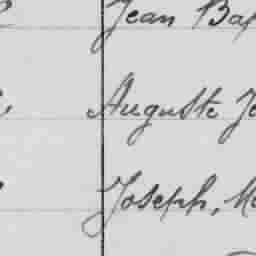 Jean Bap
Auguste Je
Joseph, Ma